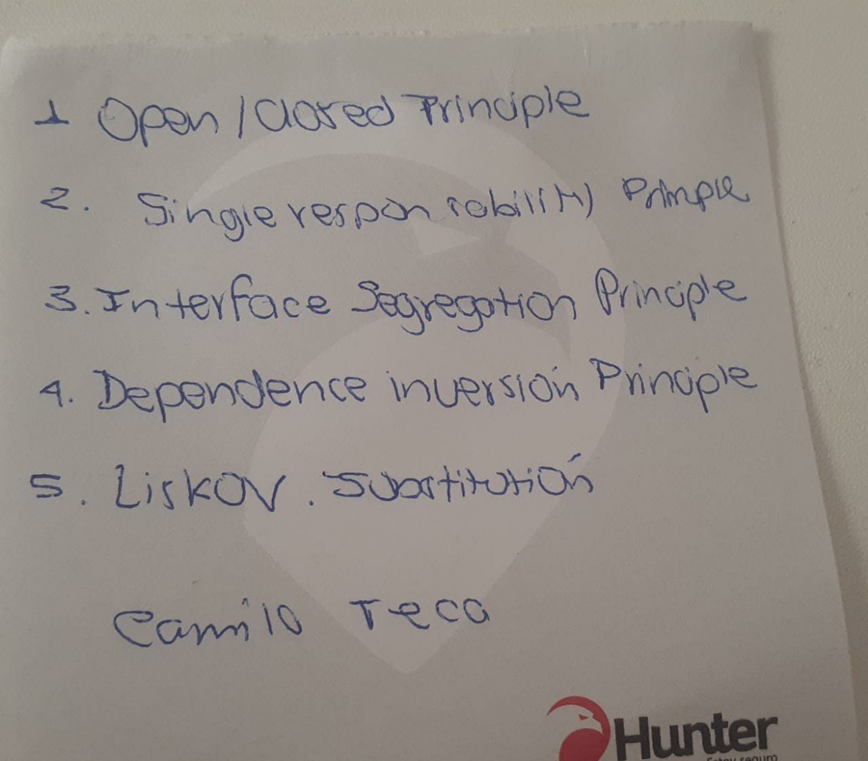 1 Open / Closed Principle
2. Single responsability Principle
3. Interface Segregation Principle
4. Dependence inversión Principle
5. Liskov. Substitutión
Camilo Teca
Hunter